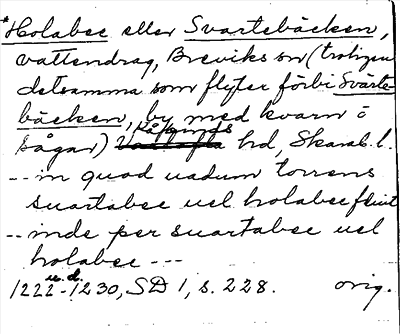 *Holabec eller Svartebäcken,
vattendrag, Breviks sn (troligen
detsamma som flyter förbi Svarte-
bäcken, by med kvarn o
Kåkinds
sågar) hd, Skarab. l.
-- in quod uadum torrens
suartabec uel holabec fluit
-- inde per suartabec uel
holabec ---
u. d.
1222-1230, SD 1, s. 228. orig.